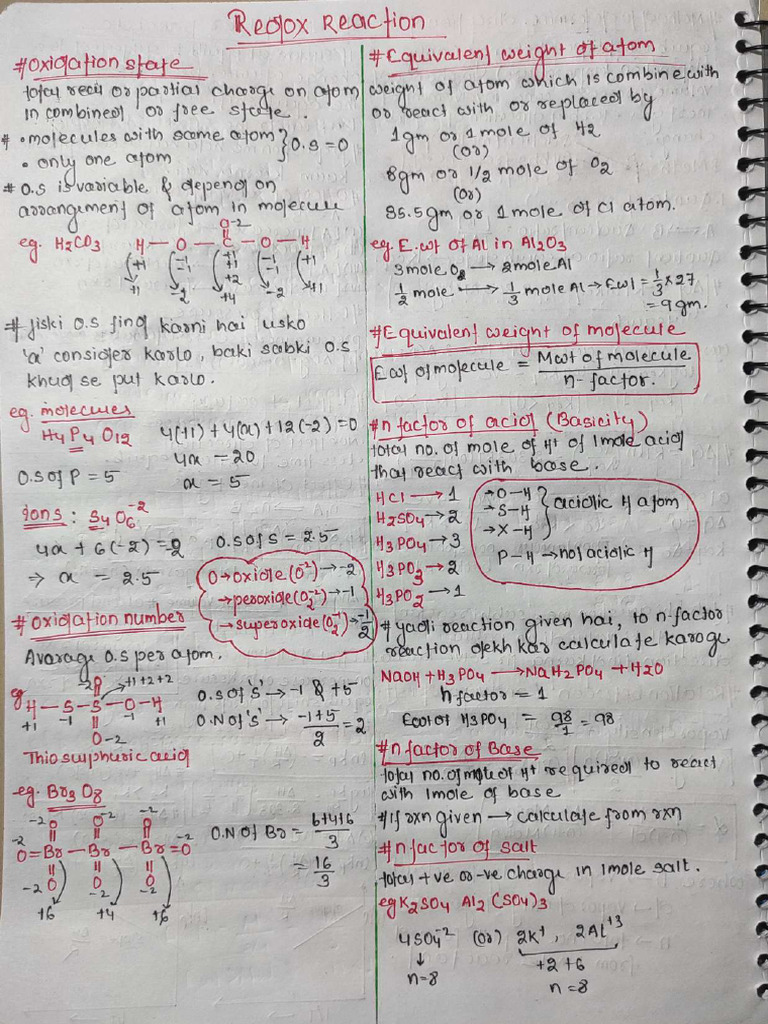 Redox Reaction
#Oxidation state
total real or partial charge on atom
in combined or free state.
# • molecules with same atom } O.S = 0
• only one atom
# O.S is variable & depend on
arrangement of atom in molecule
O-2
eg. H2CO3 H — O — C — O — H
+1 -1 +1 -1 +1
-1 +1 -1
+2
+1 -2 +4 -2 +1
# Jiski O.S find karni hai usko
'a' consider karlo, baki sabki O.S
khud se put karlo.
eg. molecules
H4P4O12 4(+1) + 4(x) + 12(-2) = 0
4x = 20
O.S of P = 5 x = 5
ions : S4O6-2
4x + 6(-2) = 2 O.S of S = 2.5
⇒ x = 2.5
O → oxide (O-2) → -2
→ peroxide (O2-2) → -1
→ superoxide (O2-1) → -1/2
# Oxidation number
Avarage O.S per atom.
-2 O +1+2+2
eg H — S — S — O — H
+1 -1 -1 +1
O-2
O.S of 'S' → -1 & +5
O.N of 'S' → -1+5/2 = 2
Thiosulphuric acid
eg. Br3O8
-2 O O-2 O -2
-2 O=Br — Br — Br=O -2
-2 O O -2 O -2
+6 +4 +6
O.N of Br = 6+4+6/3
= 16/3
# Equivalent weight of atom
weight of atom which is combine with
or react with or replaced by
1gm or 1 mole of H2
(or)
8gm or 1/2 mole of O2
(or)
35.5gm or 1 mole of Cl atom.
eg. E.wt of Al in Al2O3
3mole O2 → 2mole Al
1/2 mole → 1/3 mole Al → Ewt = 1/3 × 27
= 9 gm.
#Equivalent weight of molecule
Ewt of molecule = Mwt of molecule / n-factor.
#n factor of acid (Basicity)
total no. of mole of H+ of 1mole acid
that react with base.
HCl → 1
H2SO4 → 2
H3PO4 → 3
H3PO3 → 2
H3PO2 → 1
→ O-H
→ S-H } acidic H atom
→ X-H
P-H → not acidic H
# yadi reaction given hai, to n-factor
reaction dekh kar calculate karoge
NaOH + H3PO4 → NaH2PO4 + H2O
n factor = 1
Ewt of H3PO4 = 98/1 = 98
#n factor of Base
total no. of mole of H+ required to react
with 1mole of base
#If rxn given → calculate from rxn
#n factor of salt
total +ve or -ve charge in 1mole salt.
eg K2SO4 Al2(SO4)3
4SO4-2 (or) 2K+, 2Al+3
↓ +2+6
n=8 n=8